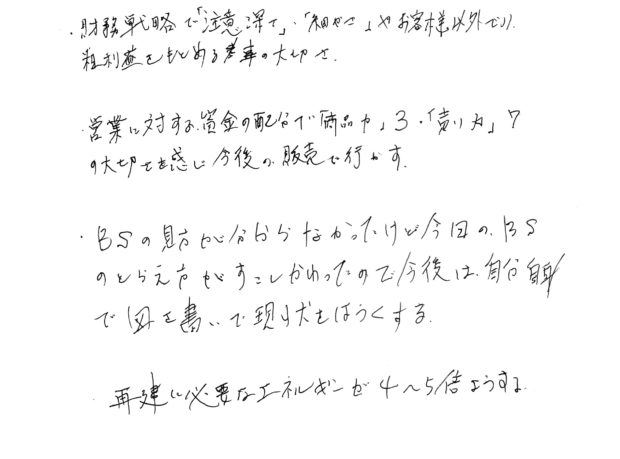 ・財務戦略で「注意深さ」・「細かさ」やお客様以外での
粗利益をもとめる事の大切さ.
・営業に対する資金の配分で「商品力」3・「売り力」7
の大切さを感じ今後の販売で行かす.
・BSの見方が分からなかったけど今回のBS
のとらえ方がすこしかわったので今後は.自分自身
で図を書いて現状をはあくする.
・再建に必要なエネルギーが4〜5倍ようする.